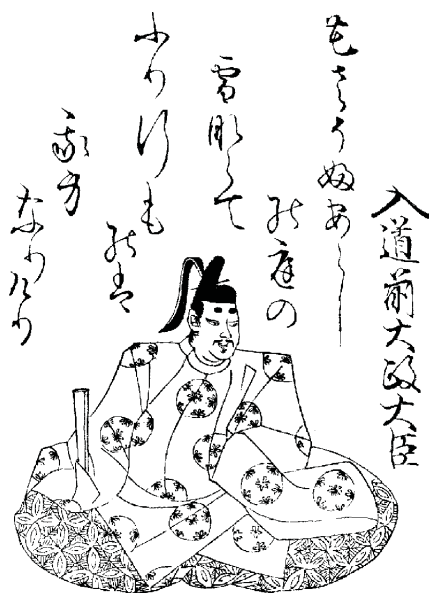 入道前大政大臣
花さそふあらし
の庭の
雪ならて
ふり行も
のは
我身
なりけり